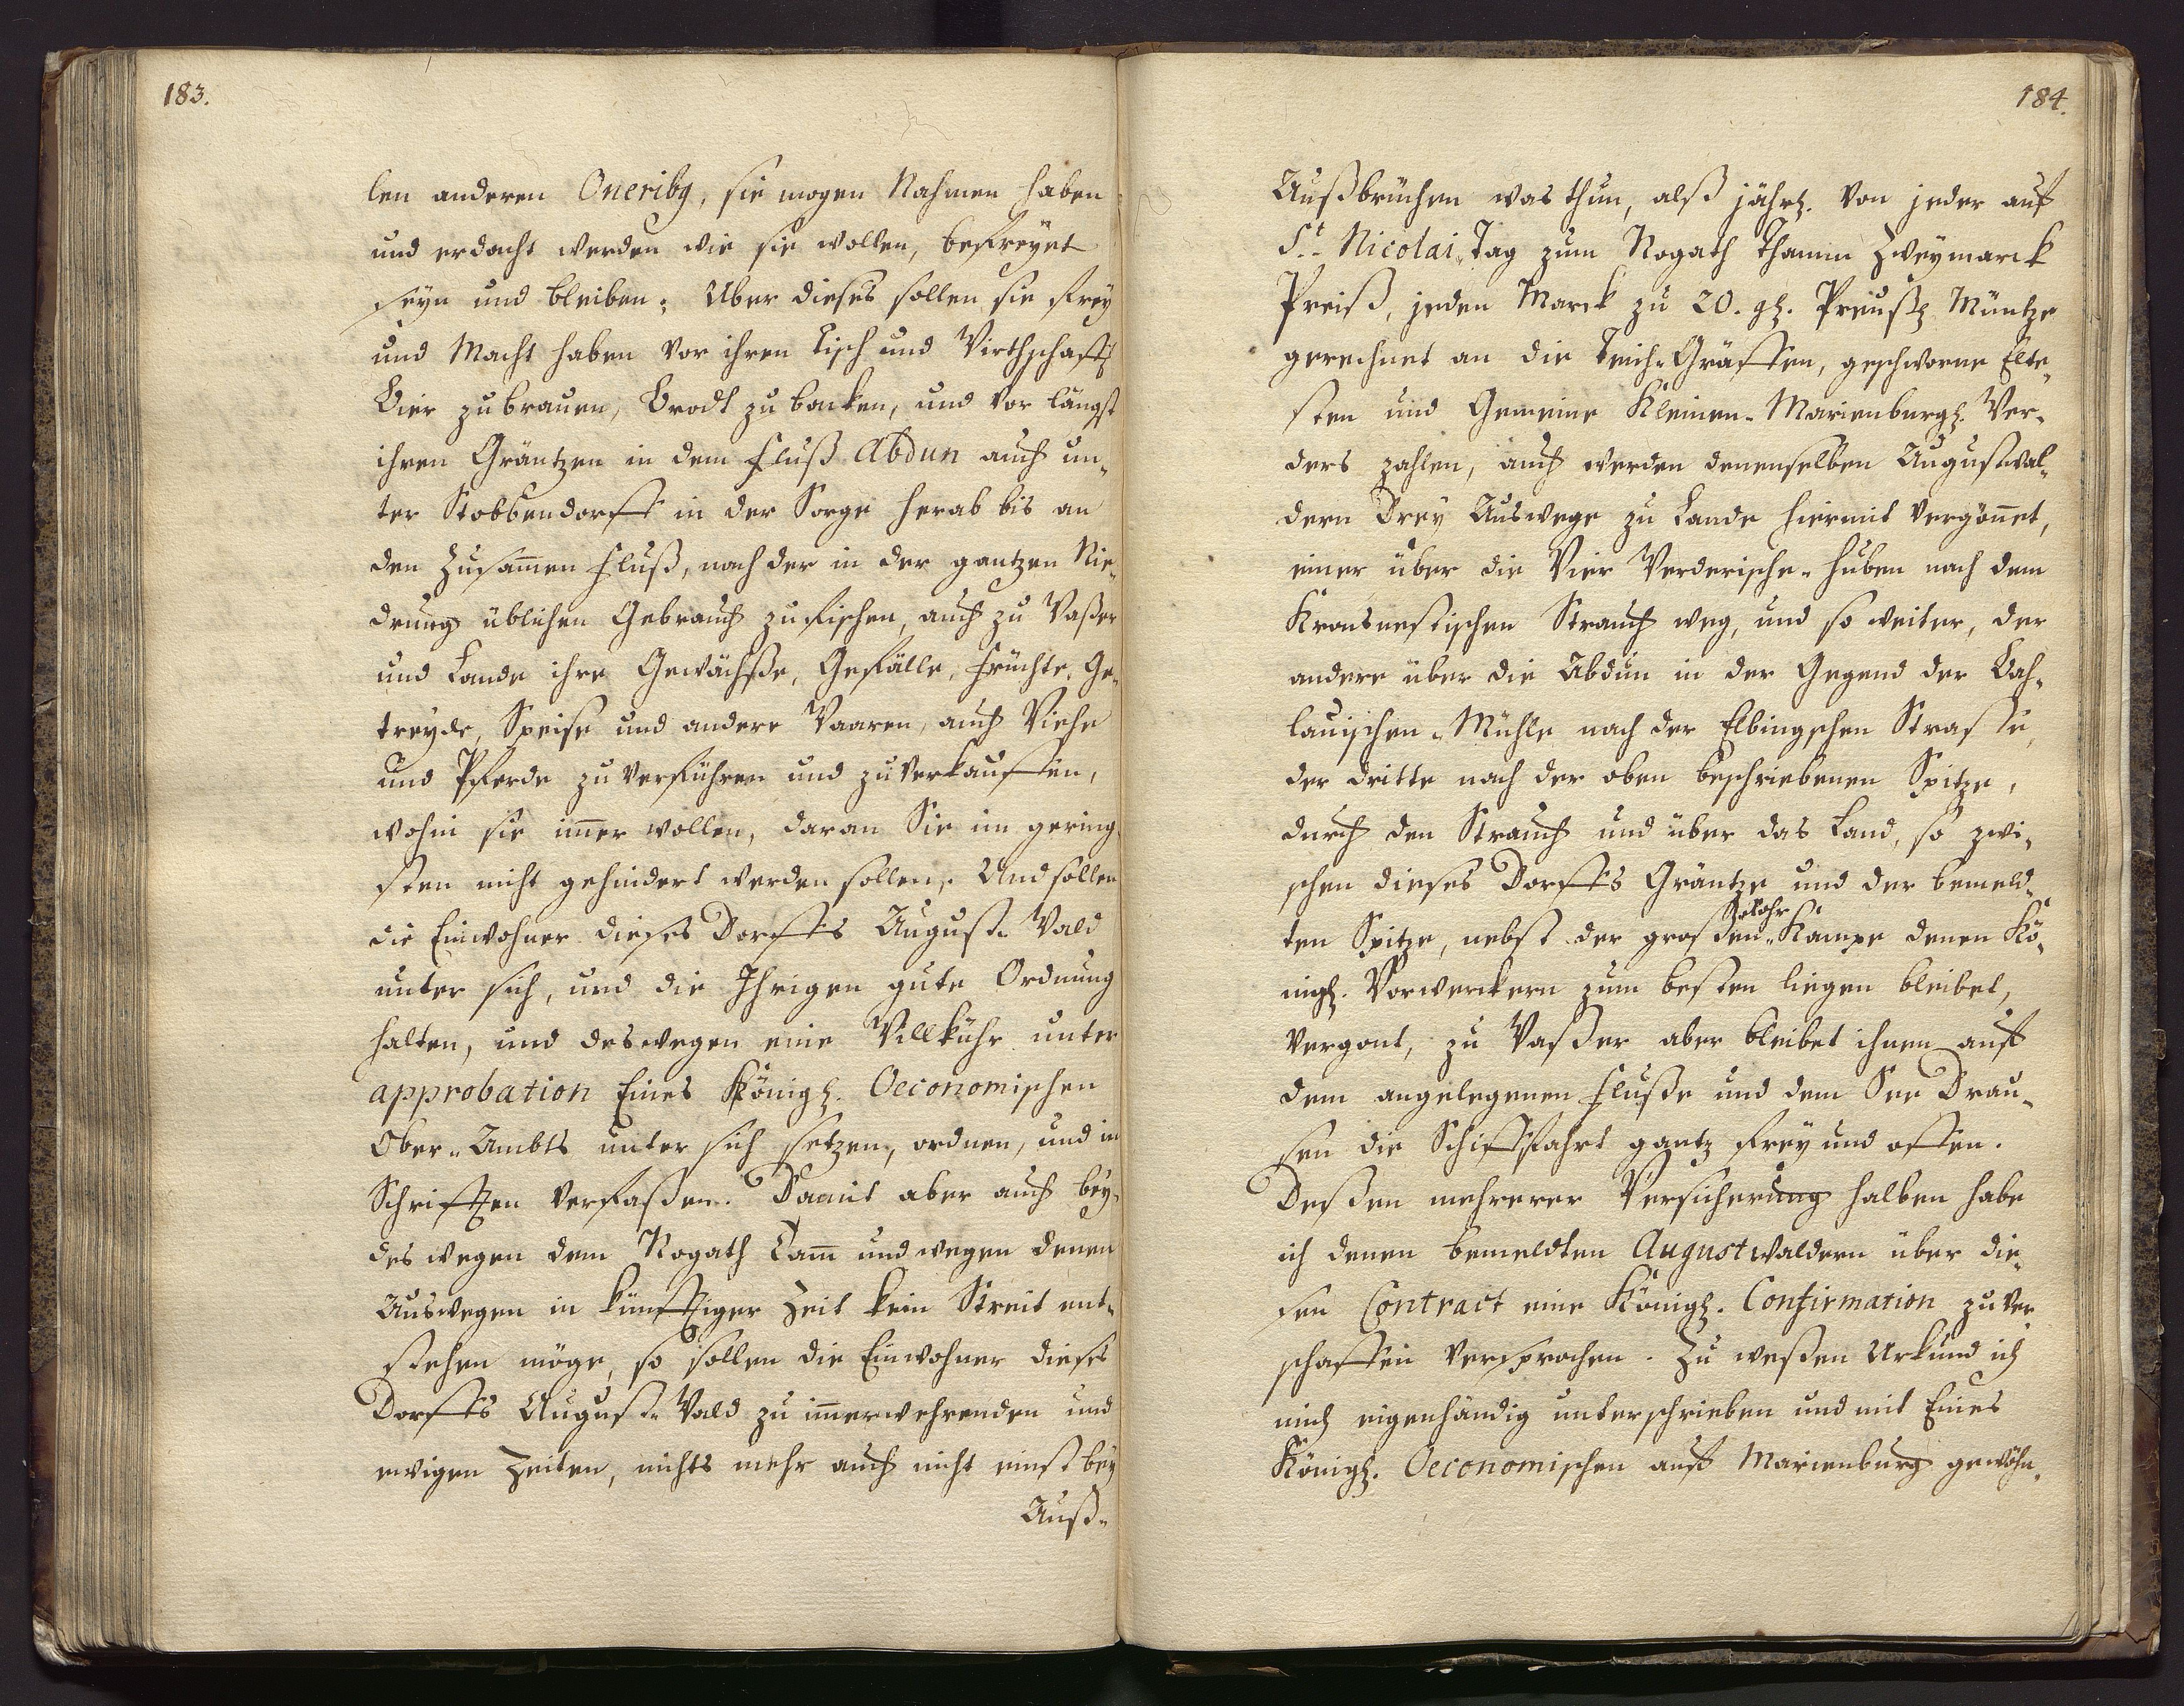 183.
len anderen Oneribg, sie mogen Nahmen haben
und erdacht werden wie sie wollen, befreyet
seyn und bleiben; Uber dieses sollen sie frey
und Macht haben vor ihren Tisch und Wirthschafft
Bier zu brauen, Brodt zu backen, und vor längst
ihren Gräntzen in dem Fluß Abdun auch un¬
ter Stobbendorff in der Sorge herab bis an
den Zusam̄en Fluß, nach der in der gantzen Nie¬
drung üblichen Gebrauch zu fischen, auch zu Waßer
und Lande ihre Gewächße, Gefälle, Früchte, Ge¬
treyde, Speise und andere Waaren, auch Viehe
und Pferde zu verführen und zu verkauffen,
wohin sie im̄er wollen, daran Sie im gering¬
sten nicht gehindert werden sollen. Und sollen
die Einwohner dieses Dorffs August-Wald
unter sich, und die Ihrigen gute Ordnung
halten, und deswegen eine Willkühr unter
approbation Eines Königl. Oeconomischen
Ober-Ambts unter sich setzen, ordnen, und in
Schrifften verfaßen. Damit aber auch bey¬
des wegen dem Nogath Tam̄ und wegen denen
Auswegen in künfftiger Zeit kein Streit ent¬
stehen möge, so sollen die Einwohner dieses
Dorffs August-Wald zu im̄erwehrenden und
ewigen Zeiten, nichts mehr auch nicht einst bey
Auß-
184.
Außbrüchen was thun, alß jährl. von jeder auf
St. Nicolai-Tag zum Nogath Thamm Zweymarck
Preiß, jeden Marck zu 20. gl. Preußl Müntze
gerechnet an die Teich-Gräffen, geschworne Elte¬
sten und Gemeine Kleinen-Marienburgl. Wer¬
ders zahlen, auch werden denenselben Augustwal¬
dern Drey Auswege zu Lande hiermit vergön̄et,
einer über die Vier Werderische-Huben nach dem
Kronsnestischen Strauch weg, und so weiter, der
andere über die Abdun in der Gegend der Bah¬
lauischen-Mühle nach der Elbingschen Strasse,
der dritte nach der oben beschriebenen Spitze,
durch den Strauch und über das Land, so zwi¬
schen dieses Dorffs Gräntze und der bemeld¬
ten Spitze, nebst der großen-Kampe denen Kö¬
nigl. Vorwerckern zum besten liegen bleibet,
vergont, zu Waßer aber bleibet ihnen auff
dem angelegenen Fluße und dem See Drau¬
sen die Schiffahrt gantz frey und offen.
Deßen mehrerer Versicherung halben habe
ich denen bemeldten Augustwaldern über die¬
sen Contract eine Königl. Confirmation zu ver¬
schaffen versprochen. Zu weßen Urkund ich
mich eigenhändig unterschrieben und mit Eines
Königl. Oeconomischen auff Marienburg gewöhn¬